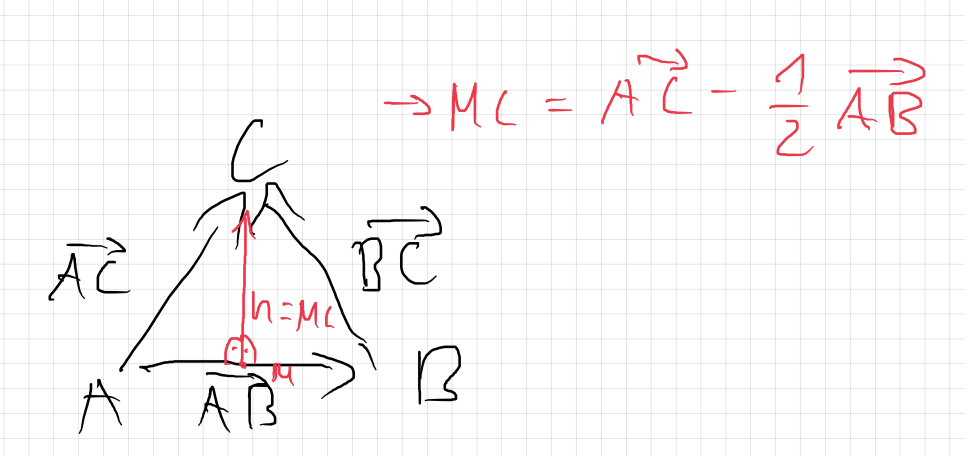 → MC = \overrightarrow{AC} - \frac{1}{2} \overrightarrow{AB}
C
\overrightarrow{AC}
\overrightarrow{BC}
h=MC
M
A
\overrightarrow{AB}
B